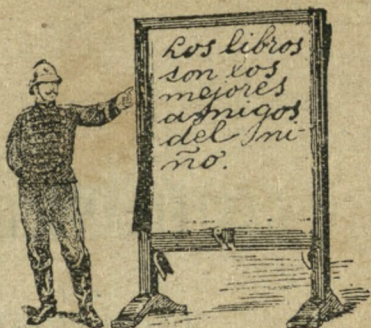 Los libros
son los
mejores
amigos
del ni-
ño.